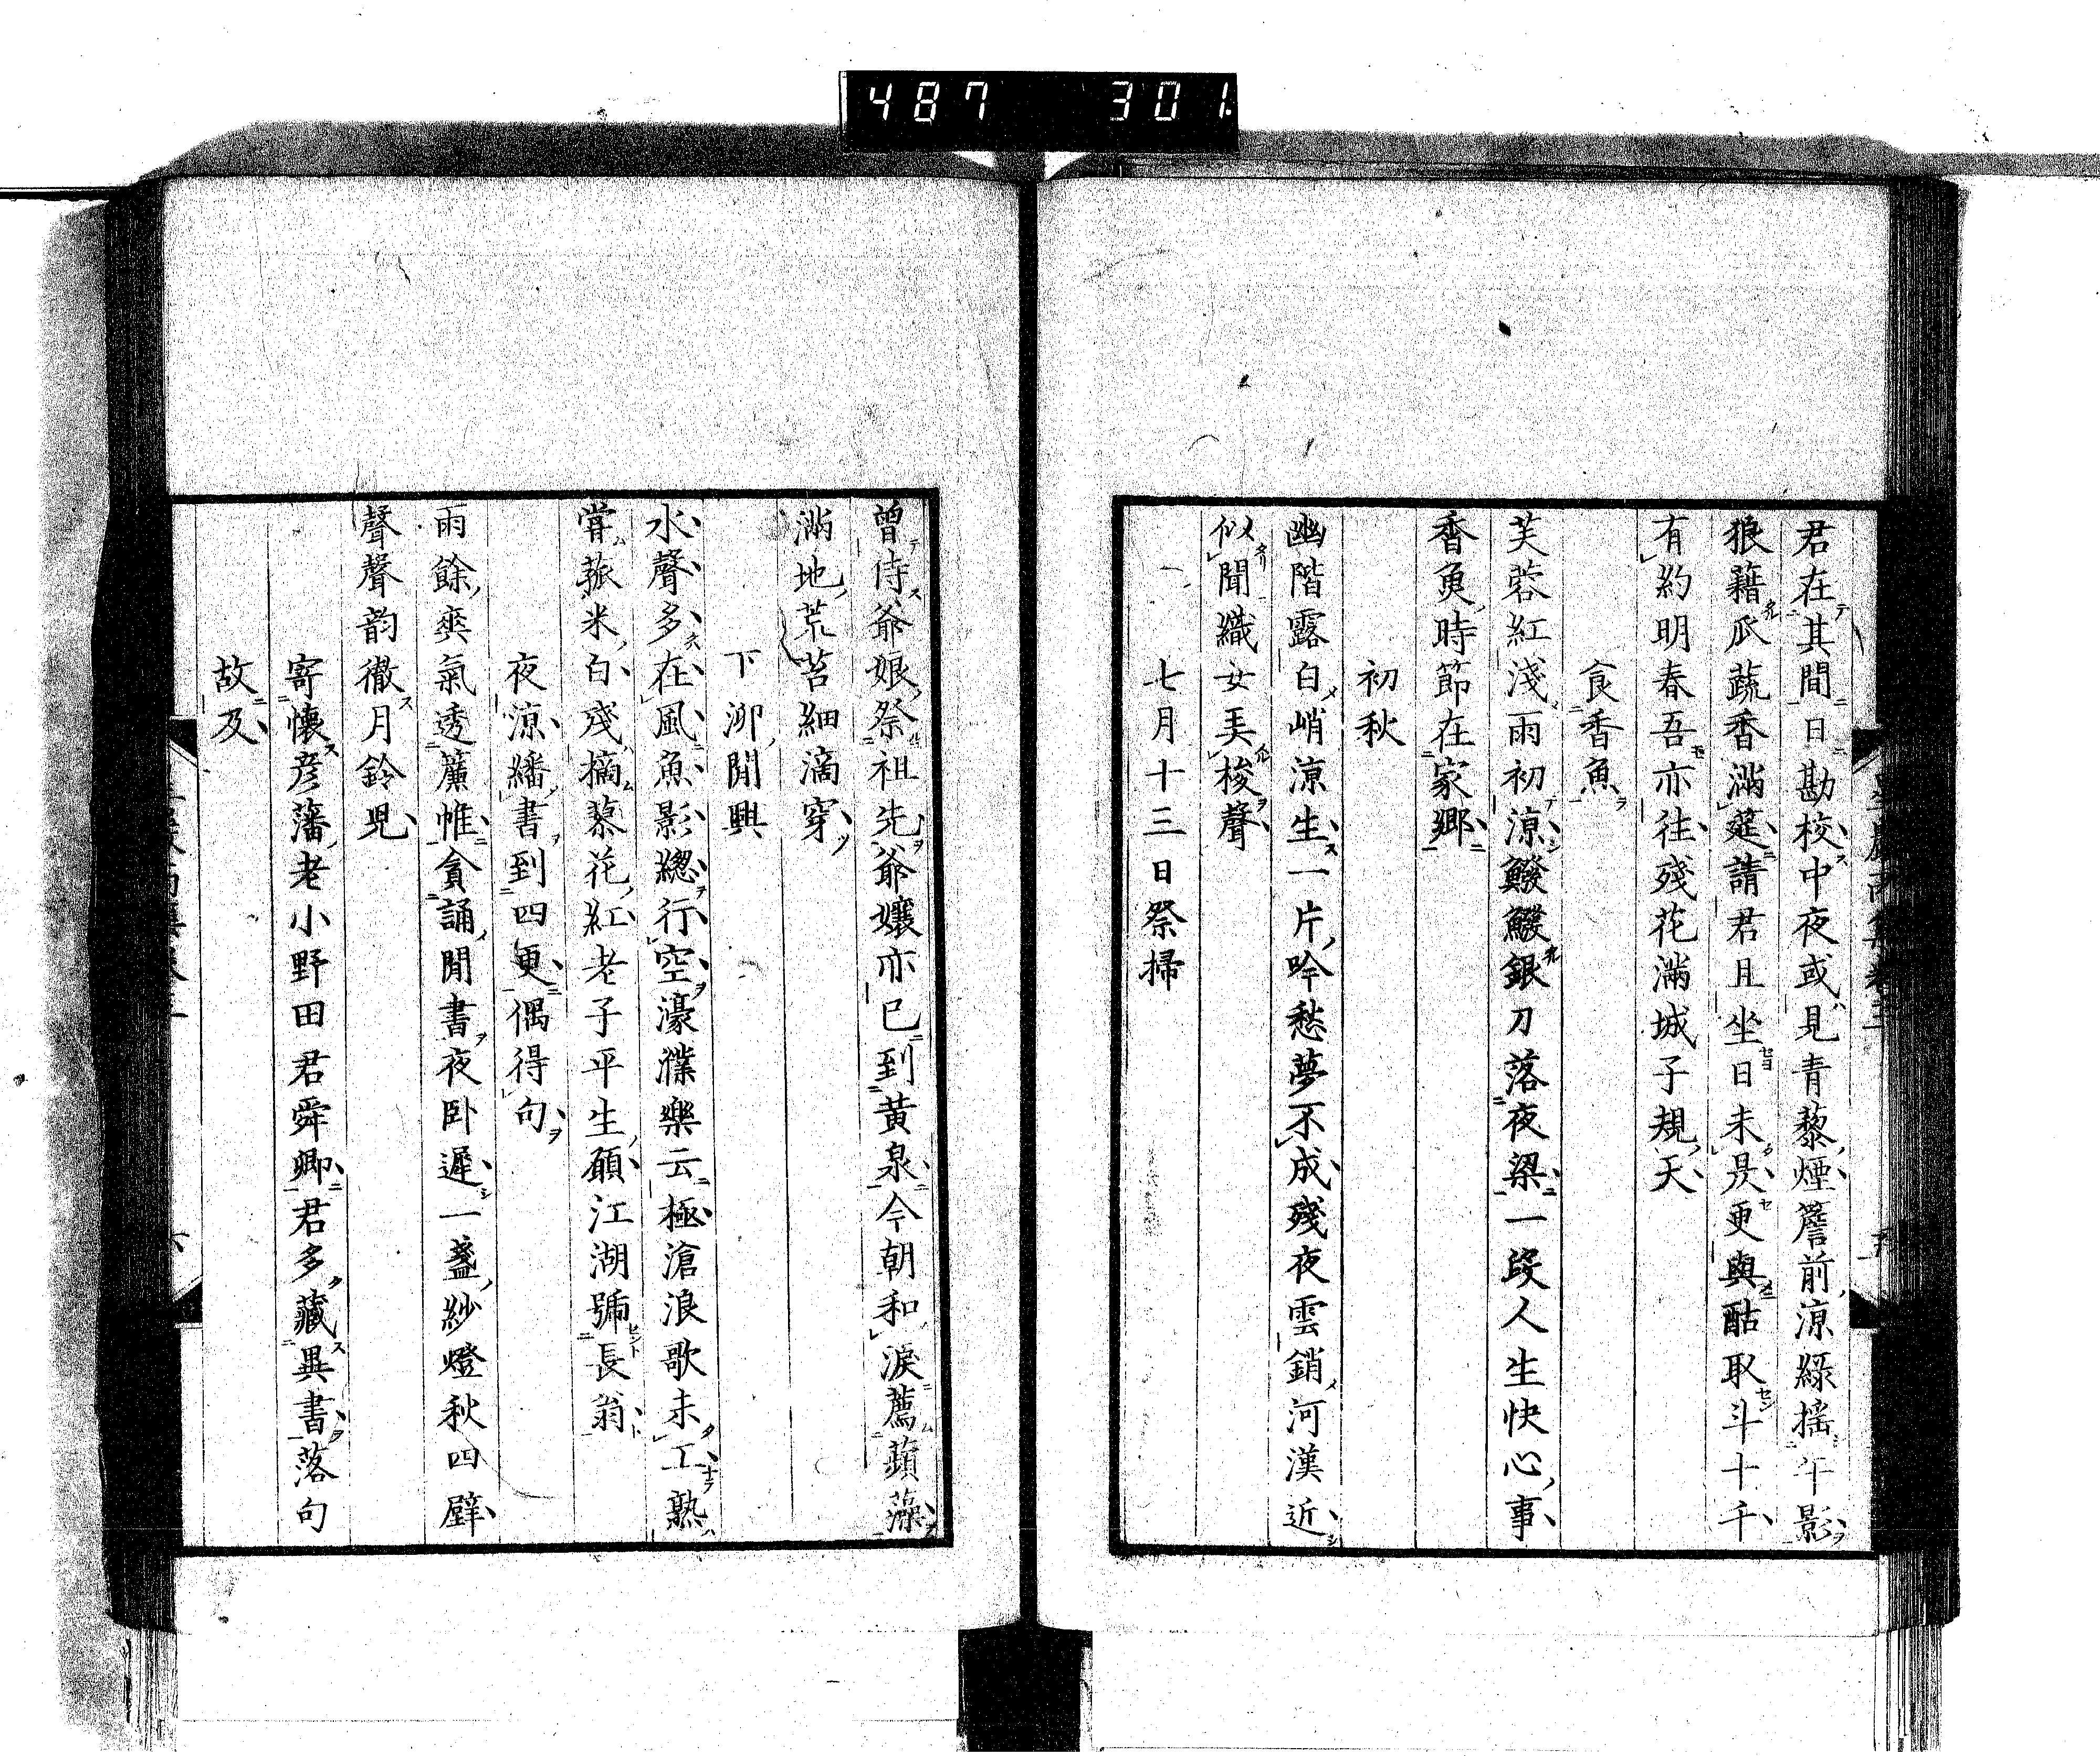 487 301
君在其間日勘校中夜或見青藜煙簷前涼綠搖午影
狼藉瓜蔬香滿筵請君且坐日未昃更與酤取斗十千
有約明春吾亦往殘花滿城子規天
食香魚
芙蓉紅淺雨初涼鱍鱍銀刀落夜梁一段人生快心事
香魚時節在家鄉
初秋
幽階露白峭涼生一片吟愁夢不成殘夜雲銷河漢近
似聞織女弄梭聲
七月十三日祭掃
曾侍爺娘祭祖先爺孃亦已到黃泉今朝和淚薦蘋藻
滿地荒苔細滴穿
下泖閒興
水聲多在風魚影總行空濠濮樂云極滄浪歌未工熟
嘗菰米白殘摘蓼花紅老子平生願江湖號長翁
夜涼繙書到四更偶得句
雨餘爽氣透簾帷貪誦閒書夜臥遲一盞紗燈秋四壁
聲聲韵徹月鈴児
寄懷彥藩老小野田君舜卿君多藏異書落句
故及